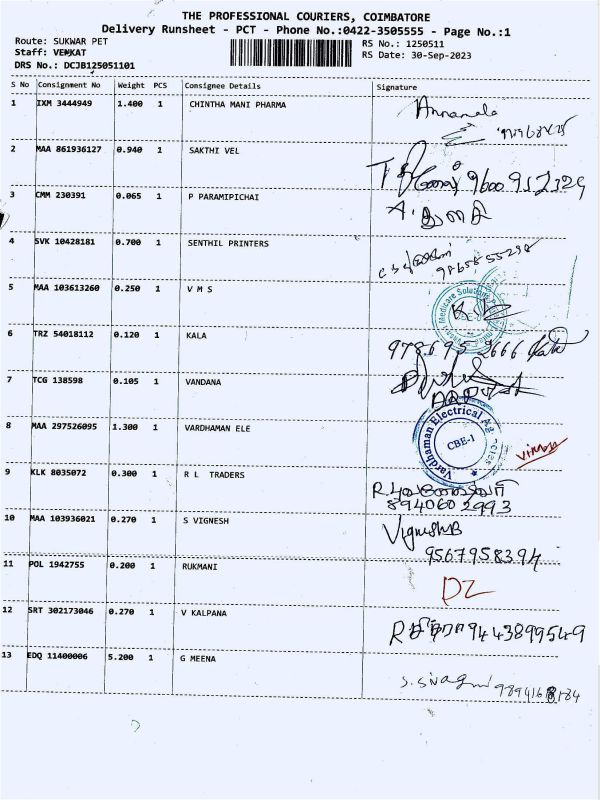 THE PROFESSIONAL COURIERS, COIMBATORE
Delivery Runsheet - PCT - Phone No.:0422-3505555 - Page No.:1
Route: SUKWAR PET RS No.: 1250511
Staff: VENKAT RS Date: 30-Sep-2023
DRS No.: DCJB125051101
S No Consignment No Weight PCS Consignee Details Signature
1 IXM 3444949 1.400 1 CHINTHA MANI PHARMA
2 MAA 861936127 0.940 1 SAKTHI VEL
9600 952324
3 CMM 230391 0.065 1 P PARAMIPICHAI
4 SVK 10428181 0.700 1 SENTHIL PRINTERS
5 MAA 103613260 0.250 1 V M S
Medicare Solutions
6 TRZ 54018112 0.120 1 KALA
978695 2666
7 TCG 138598 0.105 1 VANDANA
8 MAA 297526095 1.300 1 VARDHAMAN ELE
Vardhaman Electrical
CBE-1
9 KLK 8035072 0.300 1 R L TRADERS
894060 2993
10 MAA 103936021 0.270 1 S VIGNESH
Vignesh B
9567958394
11 POL 1942755 0.200 1 RUKMANI
DZ
12 SRT 302173046 0.270 1 V KALPANA
9443899549
13 EDQ 11400006 5.200 1 G MEENA